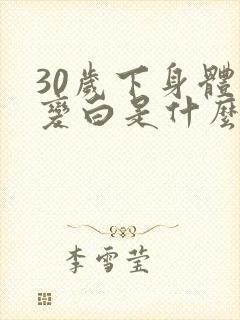 30歲下身體
變白是什麼
李雪莹